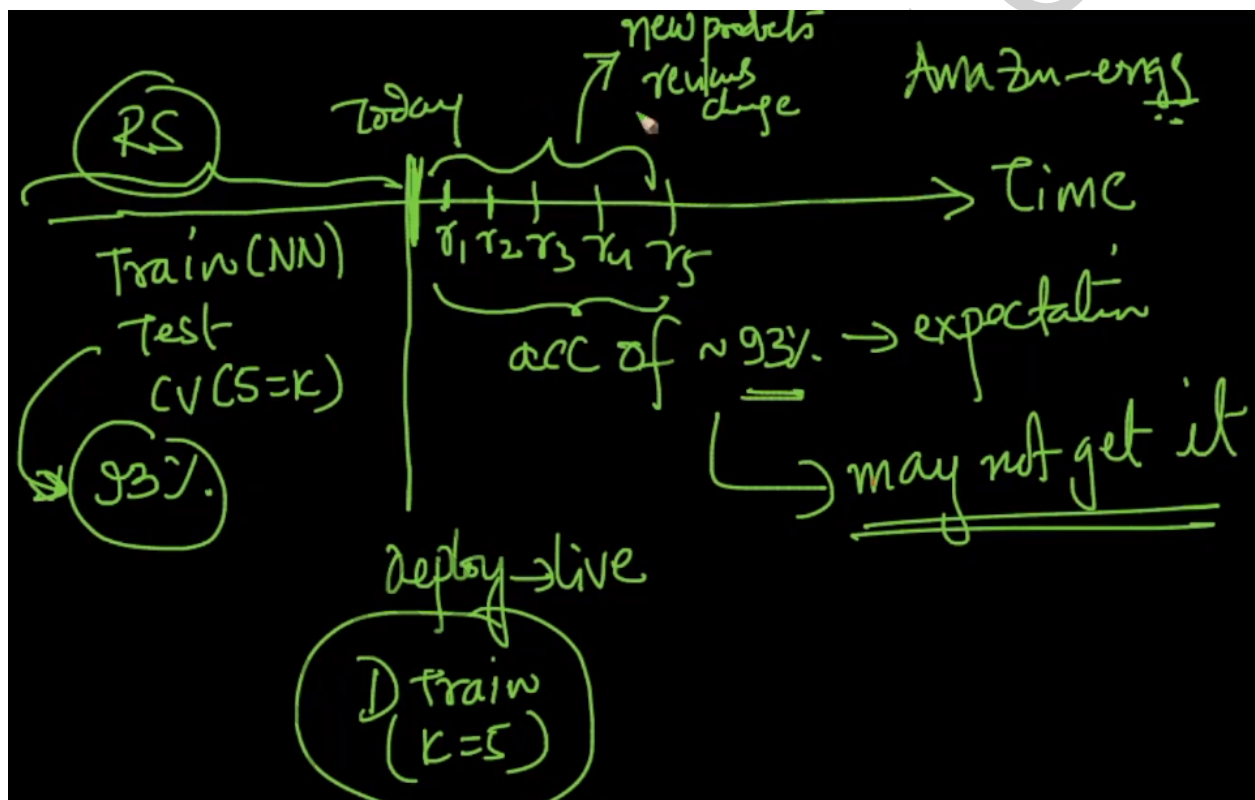 new products
reviews
change
Amazon-engs
RS
Today
Time
r1 r2 r3 r4 r5
Train (NN)
Test
CV (5=K)
93%.
acc of ~ 93%. → expectation
may not get it
Deploy → live
D Train
(K=5)